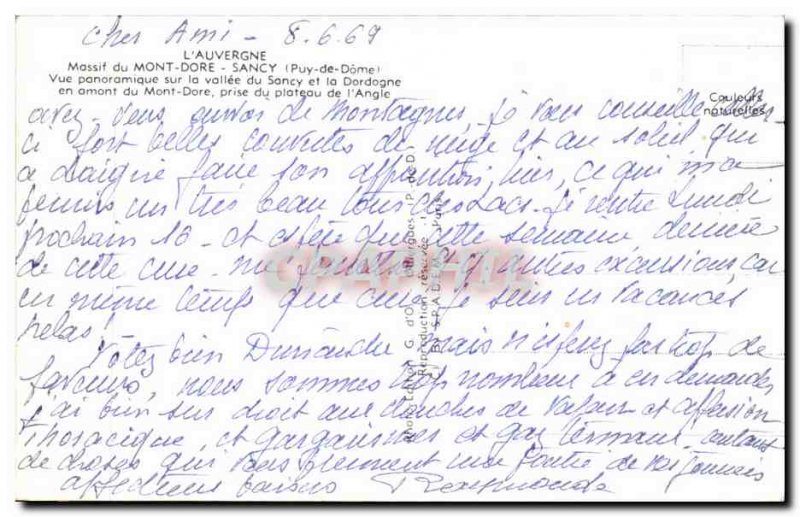 Cher Ami - 8.6.69
L'AUVERGNE
Massif du MONT-DORE - SANCY (Puy-de-Dôme)
Vue panoramique sur la vallée du Sancy et la Dordogne
en amont du Mont-Dore, prise du plateau de l'Angle
Couleurs
naturelles
avez-vous envie de montagnes, je vous conseille
ci fort belles couvertes de neige et au soleil qui
a daigné faire son apparition, hier, ce qui m'a
permis un très beau tour des Lacs. Je rentre Lundi
prochain 16 - et espère que cette semaine dernière
de cette cure me d'autres excursions, car
en même temps que cure, je suis en vacances
hélas
Votez bien mais n'espérez pas trop de
faveurs, nous sommes trop nombreux à en demander
J'ai bien sûr droit aux douches de vapeur et affusion
thoracique, et gargarismes et gaz thermaux - autant
de choses qui vous prennent une partie de vos journées
affectueux baisers Raymonde
GRAPHIL